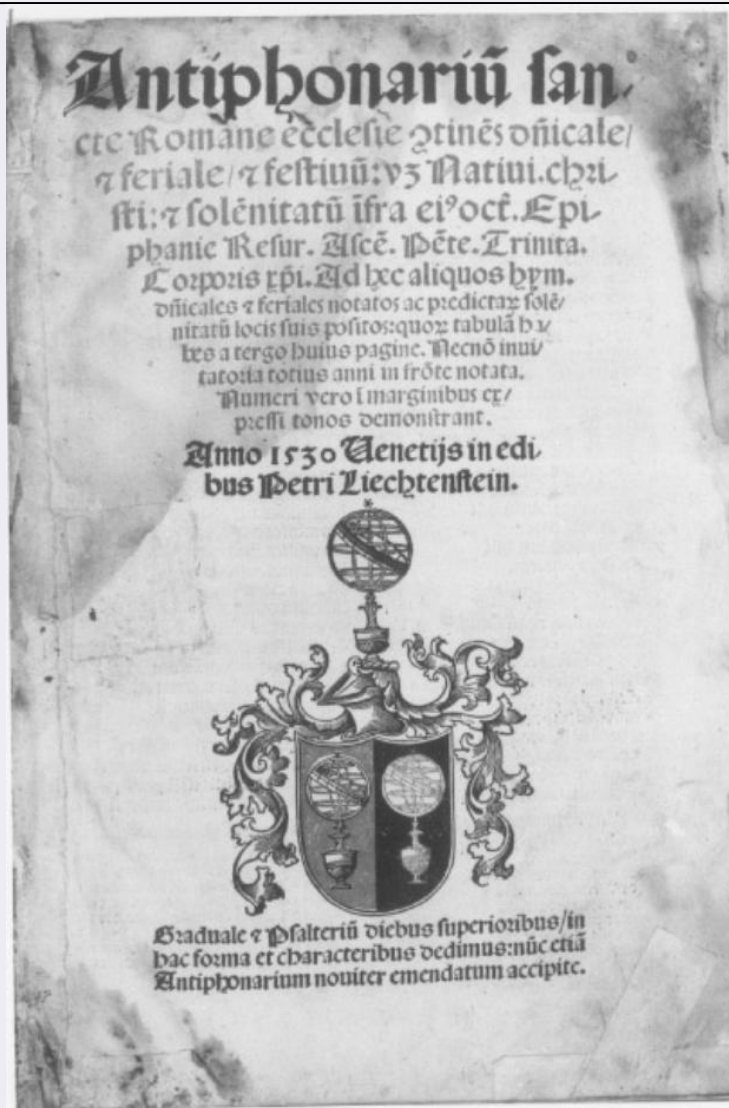 Antiphonariū san-
cte Romane ecclesie ꝯtinēs dn̄icale/
⁊ feriale/⁊ festiuū: vʒ Natiui. chri-
sti: ⁊ solēnitatū īfra eiꝰ oct̄. Epi-
phanie Resur. Ascē. Pēte. Trinita.
Corporis xp̄i. Ad hec aliquos hym.
dn̄icales ⁊ feriales notatos ac predictaꝝ solē/
nitatū locis suis positos: quoꝝ tabulā
a tergo huius pagine. Necnō inui/
tatoria totius anni in frōte notata.
Numeri vero ī marginibus ex/
pressi tonos demonstrant.
Anno 1530 Uenetijs in edi-
bus Petri Liechtenstein.
Graduale ⁊ Psalteriū diebus superioribus/in
hac forma et characteribus dedimus: nūc etiā
Antiphonarium nouiter emendatum accipite.